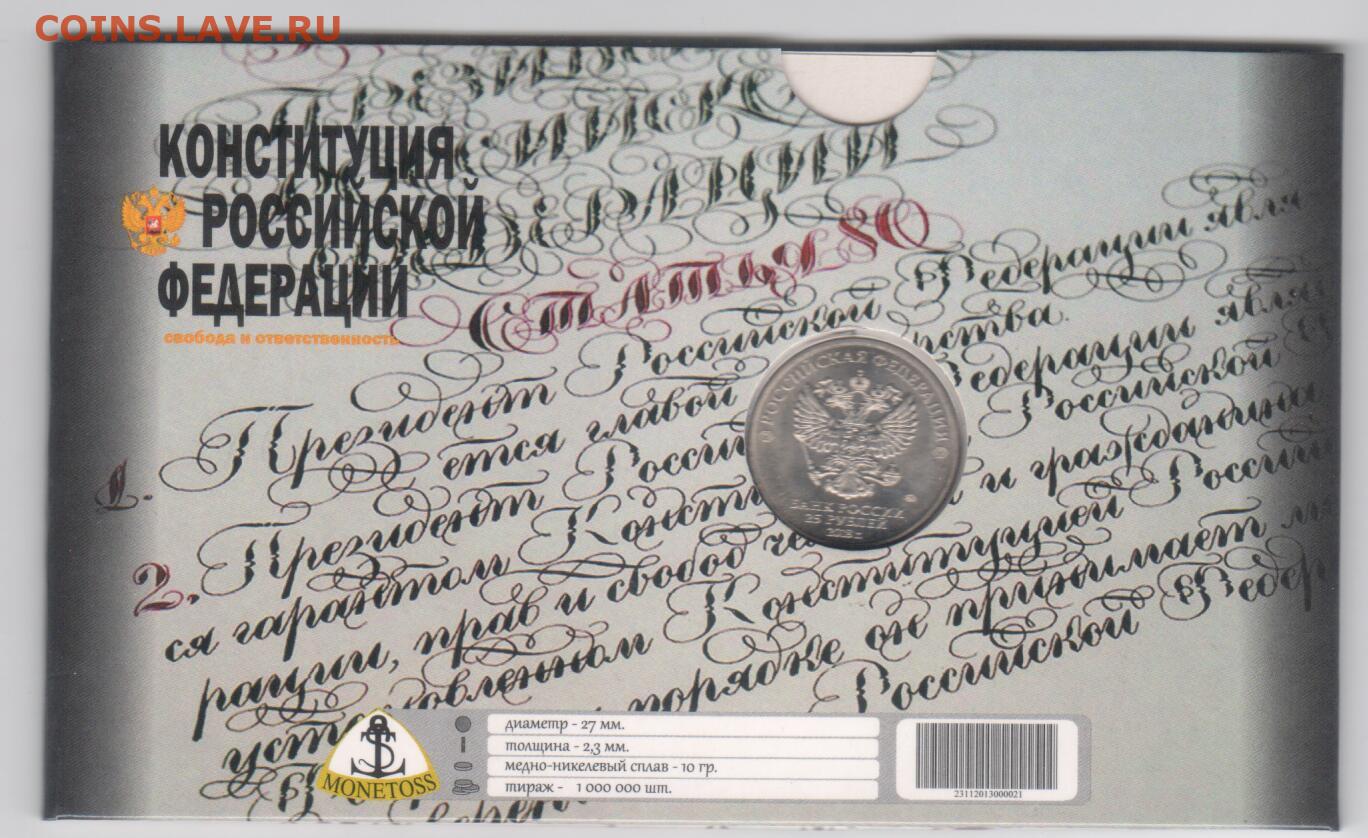 COINS.LAVE.RU
ПРЕЗИ
СИЙСК
ФЕДЕРАЦИИ
КОНСТИТУЦИЯ
РОССИЙСКОЙ
ФЕДЕРАЦИИ
свобода и ответственность
СТАТЬЯ 80
1. Президент Российской Федерации явля
ется главой рства.
2. Президент Россий Федерации являет
ся гарантом Консти Российской
рации, прав и свобод че и гражданина
уст овленном Конституцией Россий
порядке он принимает
Российской Федер
РОССИЙСКАЯ ФЕДЕРАЦИЯ
БАНК РОССИИ
25 РУБЛЕЙ
2018 г.
MONETOSS
диаметр - 27 мм.
толщина - 2,3 мм.
медно-никелевый сплав - 10 гр.
тираж - 1 000 000 шт.
23112013000021